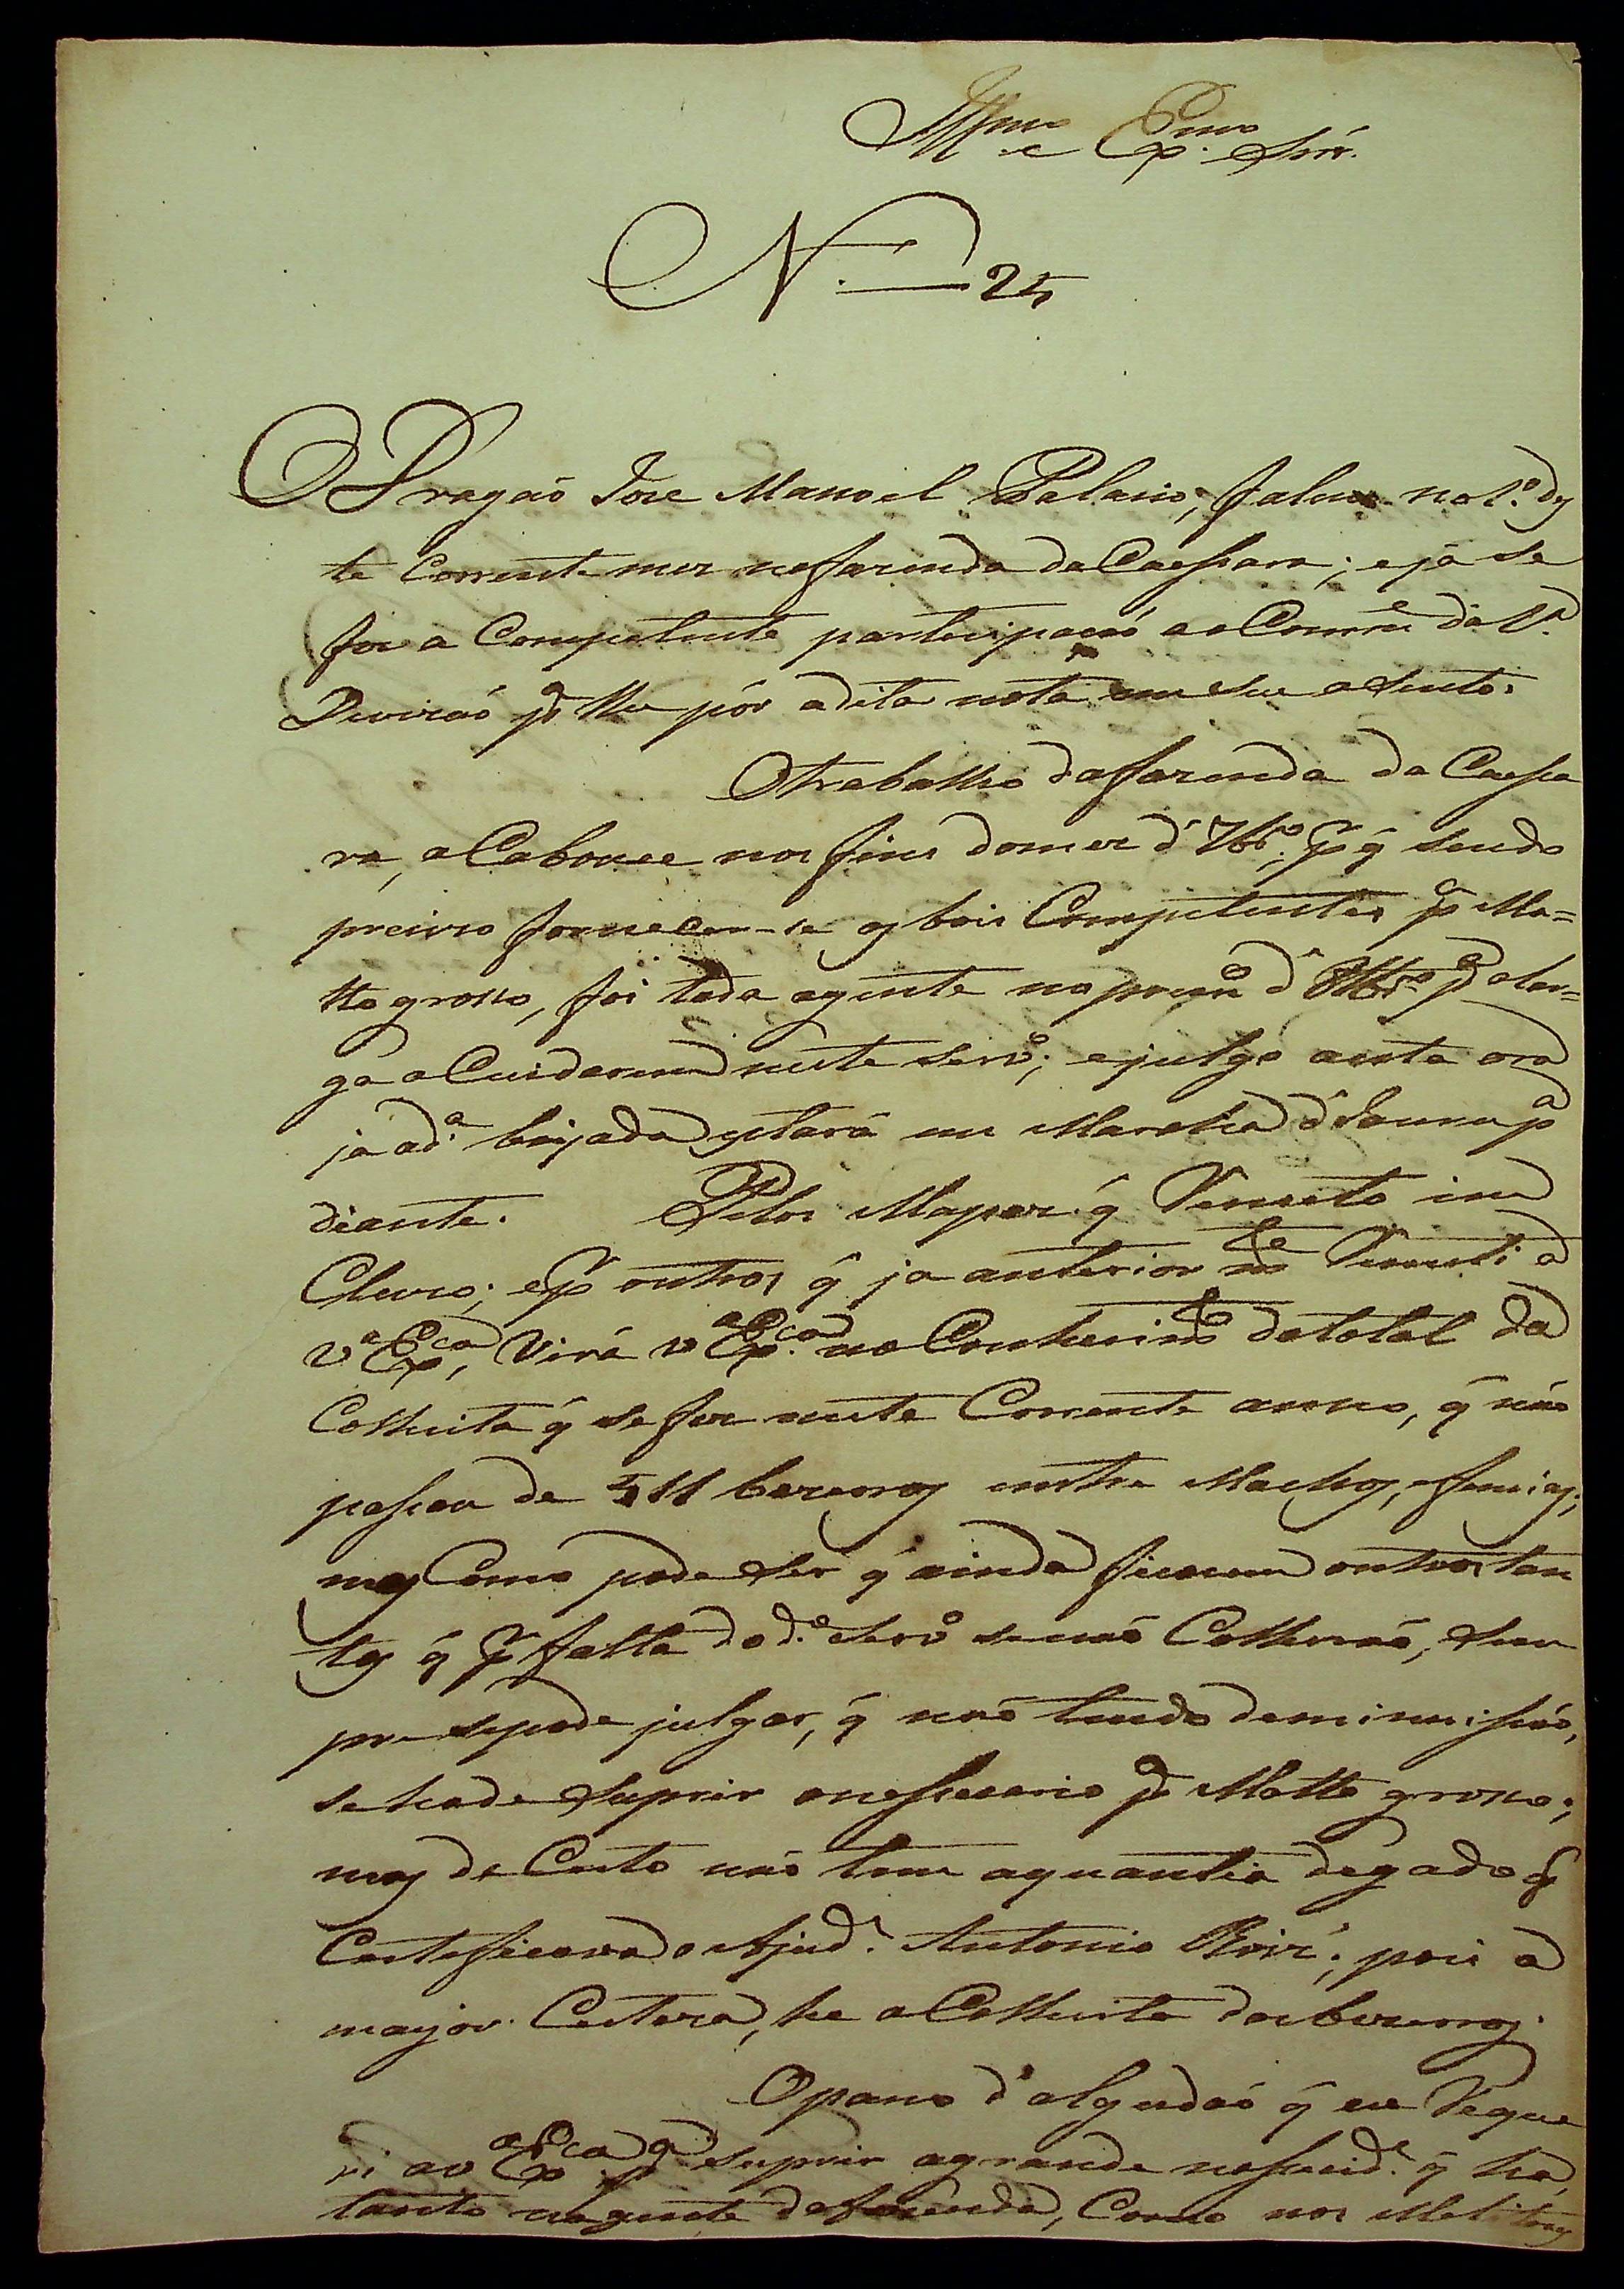 Illmo e Exmo Snr.
N. 25
O Dragaó Joze Manoel Pelaio, faleceo no 1.º des
te Corrente mez na fazenda da Caessara; e já se
fez a Competente participacaó ao Comme da 1.ª
Divizaó pª lhe pôr a dita nota em seu asento.
O trabalho da fazenda da Caessa
ra, a Cabouce nos fins do mez d' 7bro. pr q̃ sendo
precizo fornecer-se os bois Competentes pª Ma=
tto grosso, foi toda agente no princº d' 8bro pª alar=
ga a Cuidarem neste servº; e julgo a esta ora
já a dª boyada estará em Marcha d' Jauru pª
diante. Pelos Mapas q̃ Remeto in
Cluzo; e pr outros q̃ ja anteriormte Remeti a
Vª Exca, Virá Vª Exca. no Conhecimto do total da
Colheita q̃ se fez neste Corrente anno, q̃ não
passou de 511 bezerros entre Machos, e femias;
mas Como pode ser q̃ ainda ficacem outros tan
tos q̃ pr falta do dº servº se naó Colheraó, sem
pre se pode julgar, q̃ naó tendo deminuissaó,
se hade suprir o nessesario pª Matto grosso;
mas de Certo naó tem a quantia de gado q̃
Certeficava o Ajude. Antonio Roiz'; pois a
mayor Certeza, he a Colheita dos bezerros.
O pano d' algudaó q̃ eu Reque
ri a V Exca pª suprir a grande nessecide. q̃ ha,
tanto na gente da fazenda, Como nos Melitares